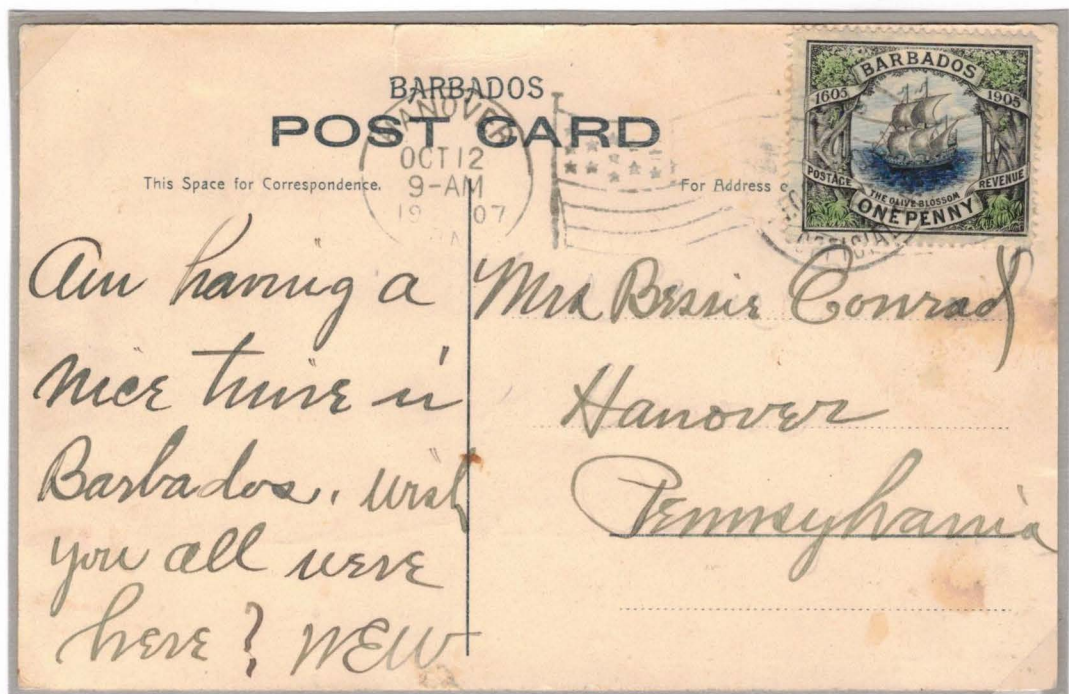 BARBADOS
POST CARD
This Space for Correspondence.
For Address
HANOVER
OCT 12
9-AM
1907
BARBADOS
1605 1905
POSTAGE REVENUE
THE OLIVE BLOSSOM
ONE PENNY
Am having a
nice time in
Barbados. Wish
you all were
here? WEW
Mrs Bessie Conrad
Hanover
Pennsylvania